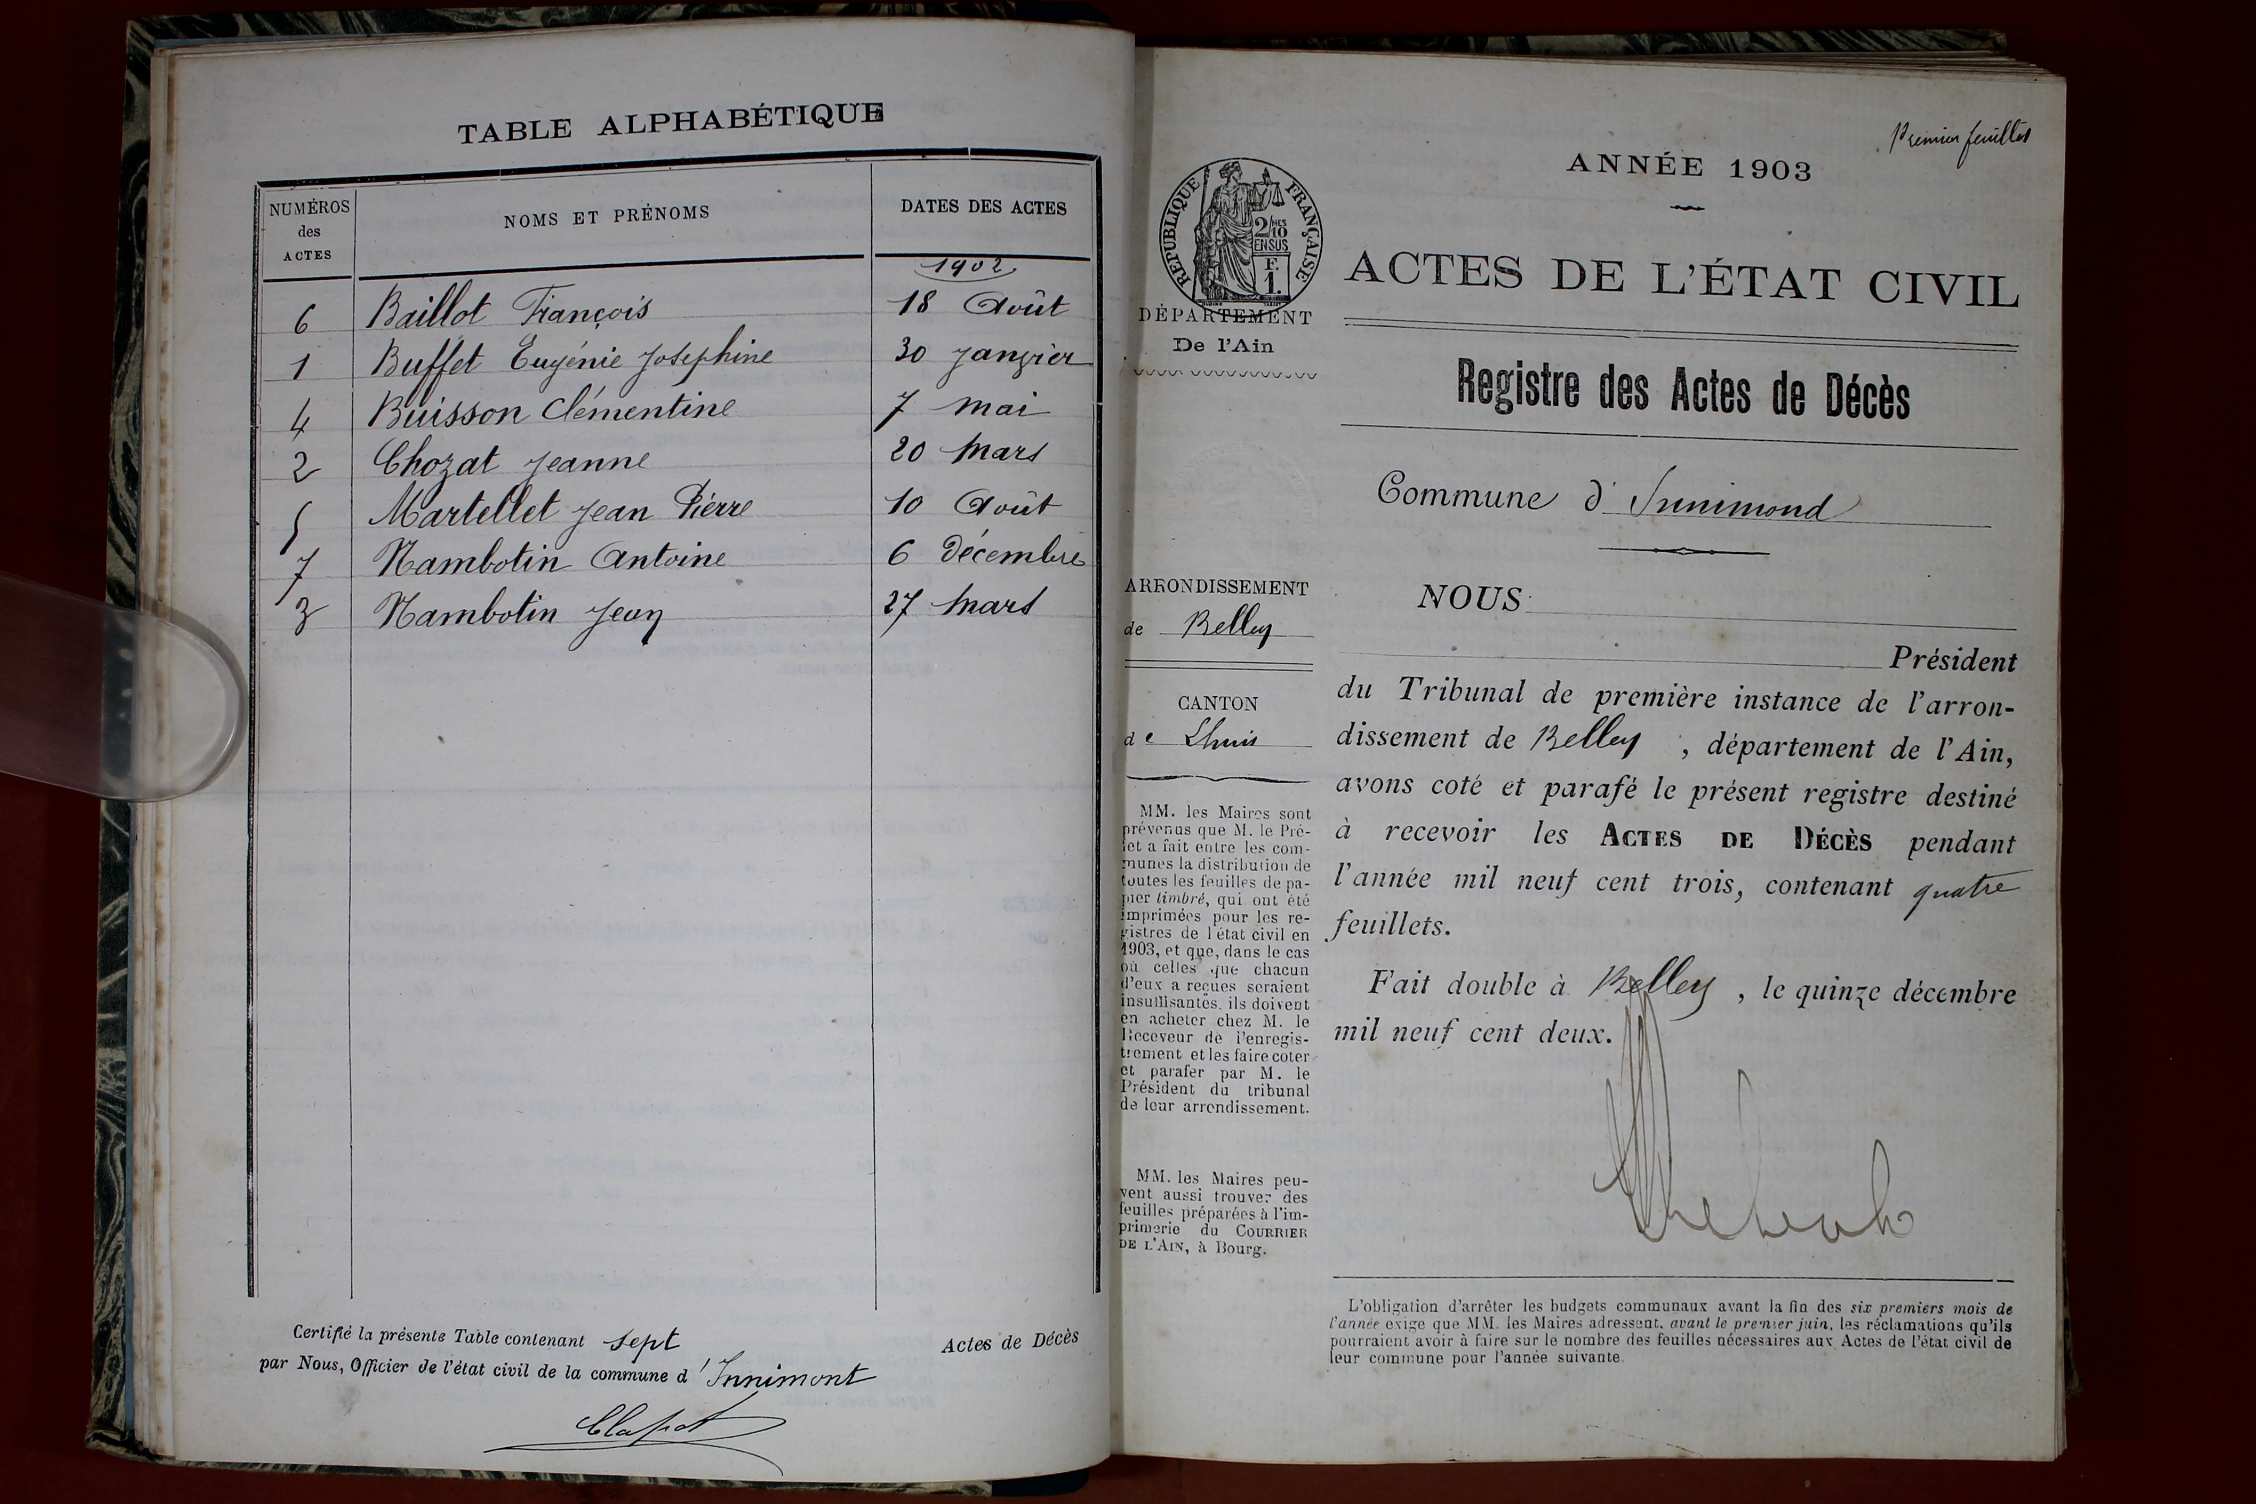 TABLE ALPHABÉTIQUE
NUMÉROS des ACTES NOMS ET PRÉNOMS DATES DES ACTES
1902
6 Baillot François 18 Août
1 Buffet Eugénie Josephine 30 Janvier
4 Buisson Clémentine 7 Mai
2 Chozat Jeanne 20 Mars
5 Martellet Jean Pierre 10 Août
7 Nambotin Antoine 6 Décembre
3 Nambotin Jean 27 Mars
Certifié la présente Table contenant sept Actes de Décès
par Nous, Officier de l'état civil de la commune d'Innimont
Premier feuillet
ANNÉE 1903
RÉPUBLIQUE FRANÇAISE
2/10
EN SUS
F.
1.
ACTES DE L'ÉTAT CIVIL
DÉPARTEMENT
De l'Ain
Registre des Actes de Décès
Commune d'Innimond
ARRONDISSEMENT
de Belley
CANTON
de Lhuis
MM. les Maires sont
prévenus que M. le Pré-
fet a fait entre les com-
munes la distribution de
toutes les feuilles de pa-
pier timbré, qui ont été
imprimées pour les re-
gistres de l'état civil en
1903, et que, dans le cas
où celles que chacun
d'eux a reçues seraient
insuffisantes, ils doivent
en acheter chez M. le
Receveur de l'enregis-
trement et les faire coter
et parafer par M. le
Président du tribunal
de leur arrondissement.
MM. les Maires peu-
vent aussi trouver des
feuilles préparées à l'im-
primerie du COURRIER
DE L'AIN, à Bourg.
NOUS
Président
du Tribunal de première instance de l'arron-
dissement de Belley, département de l'Ain,
avons coté et parafé le présent registre destiné
à recevoir les ACTES DE DÉCÈS pendant
l'année mil neuf cent trois, contenant quatre
feuillets.
Fait double à Belley, le quinze décembre
mil neuf cent deux.
L'obligation d'arrêter les budgets communaux avant la fin des six premiers mois de
l'année exige que MM. les Maires adressent, avant le premier juin, les réclamations qu'ils
pourraient avoir à faire sur le nombre des feuilles nécessaires aux Actes de l'état civil de
leur commune pour l'année suivante.